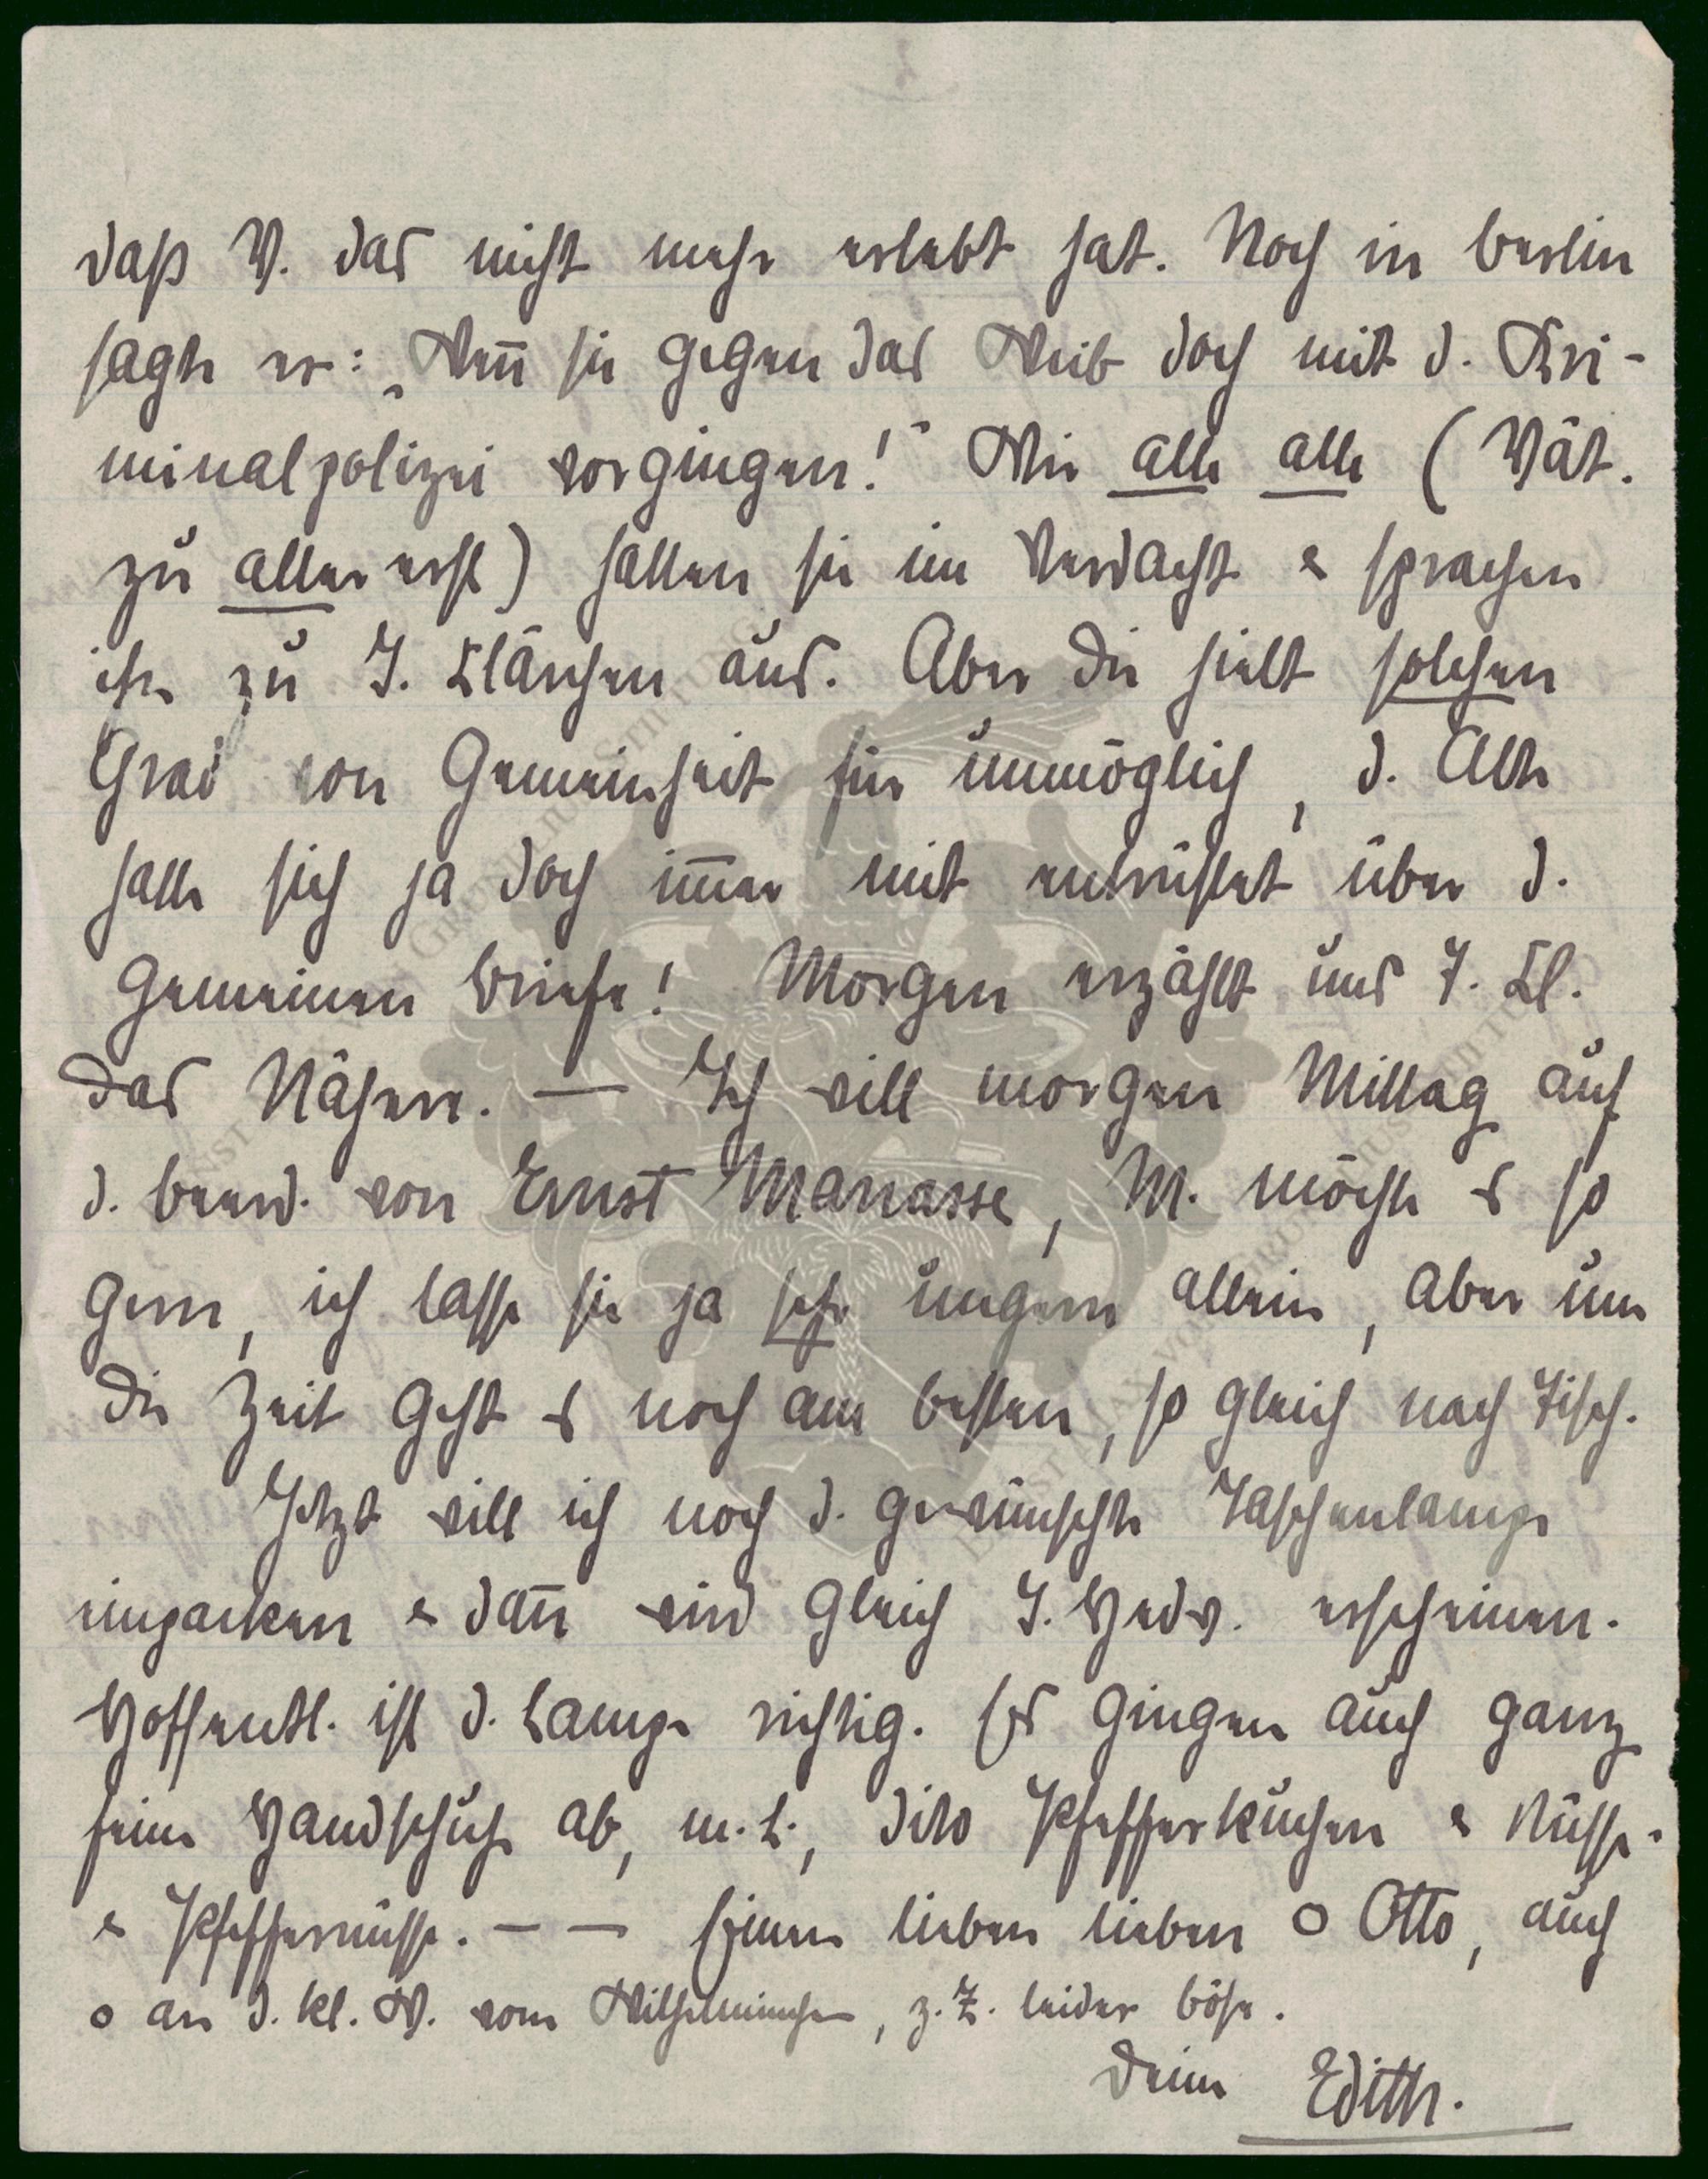 daß V. das nicht mehr erlebt hat. Noch in Berlin
sagte er: „Wenn sie gegen das Weib doch mit d. Kri-
minalpolizei vorgingen!" Wir alle alle (Vat.
zu allererst) hatten sie im Verdacht & sprachen
ihn zu T. Klärchen aus. Aber die hielt solchen
Grad von Gemeinheit für unmöglich, d. Alte
hatte sich ja doch im̅er mit entrüstet über d.
gemeinen Briefe! Morgen erzählt uns T. Kl.
das Nähere. — Ich will morgen Mittag auf
d. Beerd. von Ernst Manasse, M. möchte es so
gern, ich lasse sie ja sehr ungern allein, aber um
die Zeit geht es noch am besten, so gleich nach Tisch.
Jetzt will ich noch d. gewünschte Taschenlampe
einpacken & dan̅ wird gleich T. Hedw. erscheinen.
Hoffentl. ist d. Lampe richtig. Es gingen auch ganz
feine Handschuhe ab, m. L., dito Pfefferkuchen & Nüsse.
& Pfeffernüsse. — — Einen lieben lieben o Otto, auch
o an d. kl. W. vom Wilhelminchen, z. Z. leider böse.
Deine Edith.
ERNST MAX von GRUNELIUS-STIFTUNG